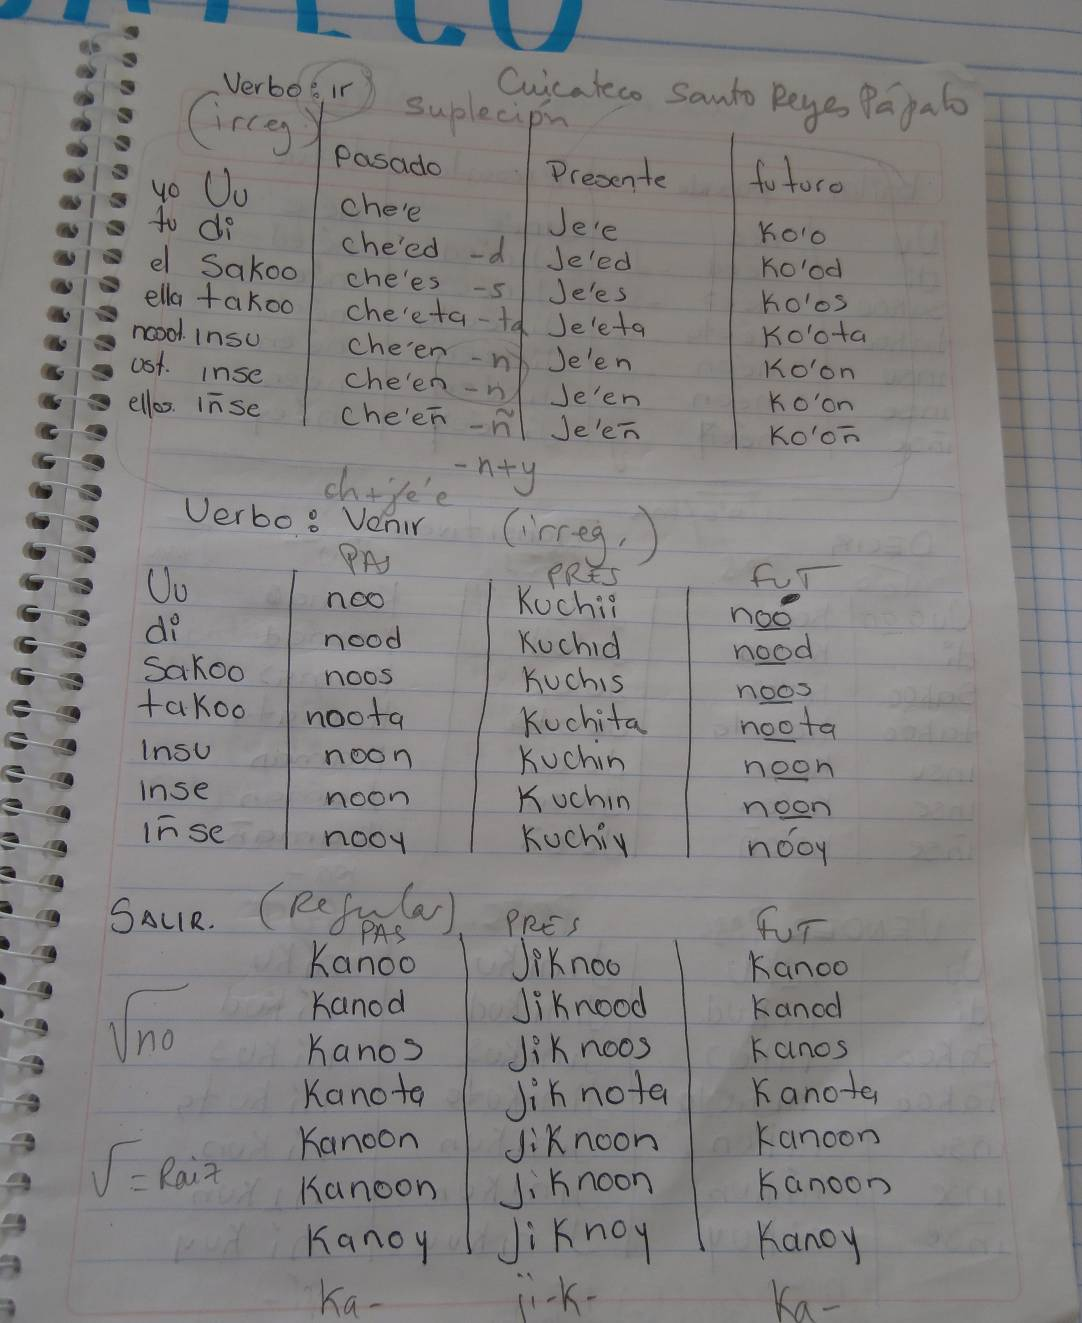 Verbo: ir Cuicateco Santo Reyes Pápalo
(irreg) suplecion
Pasado Presente futuro
yo Uu che'e Je'e Ko'o
tu di che'ed -d Je'ed Ko'od
el Sakoo che'es -s Je'es Ko'os
ella takoo che'eta -ta Je'eta Ko'ota
nosot. insu che'en -n Je'en Ko'on
ust. inse che'en -n Je'en Ko'on
ellos. in̄se che'en̄ -ñ Je'en̄ Ko'on̄
-n+y
ch+je'e
Verbo: Venir (irreg.)
PAS PRES FUT
Uu noo Kuchii noó
di nood Kuchid nood
Sakoo noos Kuchis noos
takoo noota Kuchita noota
insu noon Kuchin noon
inse noon Kuchin noon
in̄se nooy Kuchiy nóoy
SALIR. (Regular)
PAS PRES FUT
Kanoo Jiknoo Kanoo
Kanod Jiknood Kanod
√no Kanos Jiknoos Kanos
Kanota Jiknota Kanota
Kanoon Jiknoon Kanoon
√=Raiz Kanoon Jiknoon Kanoon
Kanoy Jiknoy Kanoy
Ka- ji-k- Ka-